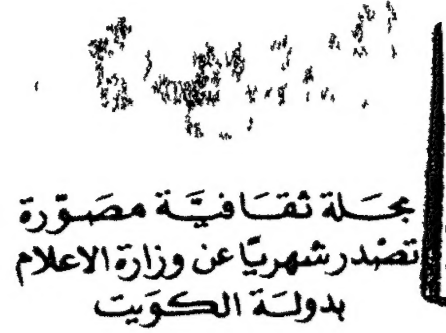 مجَـلة ثقـَافيَّـة مصَـوّرة
تصْدر شهريًا عن وزارة الاعلام
بدولـَة الكوَيت